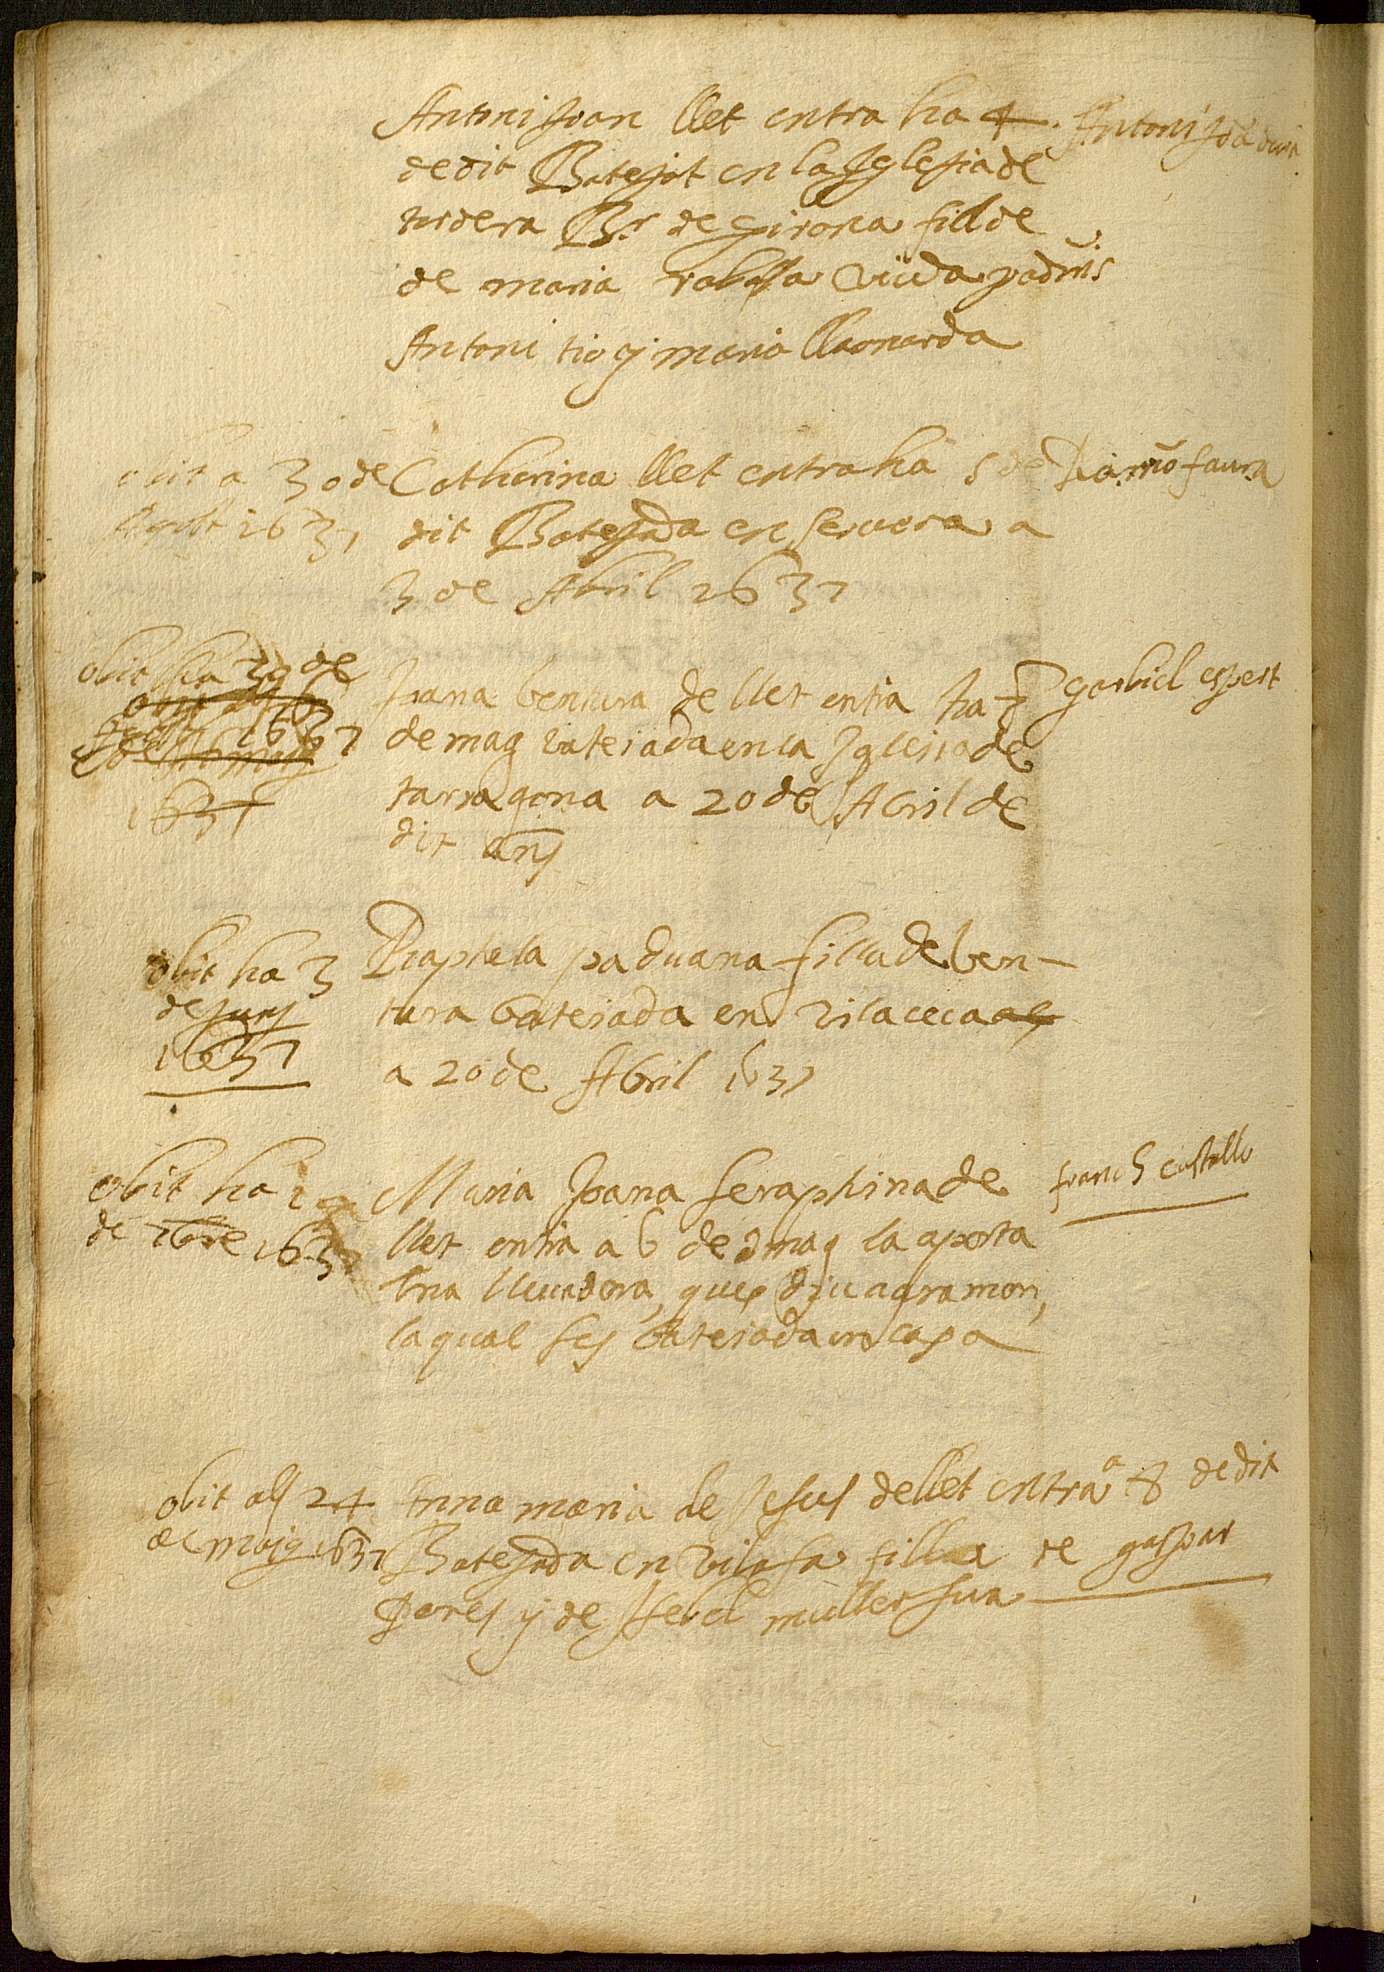 Antoni Joan llet entra ha 4
de dit Batejat en la Iglesia de
tordera B.t de Girona fill de
de maria rabassa viuda padrins
Antoni tio y maria llaonarda
Antoni Joa
obit a 30 de
Agost 1637
Catherina llet entra ha 5 de
dit Batejada en servera a
3 de Abril 1637
faura
obit ha 29 de
1637
1637
Joana bentura de llet entra ha 7
de mag bateiada en la Iglesia de
tarragona a 20 de Abril de
dit any
garbiel espert
obit ha 3
de Juny
1637
Raphela paduana filla de ben-
tura bateiada en vilaceca
a 20 de Abril 1637
obit ha 1
de 7bre 1637
Maria Joana seraphina de
llet entra a 6 de mag la aporta
una llevadora, que diu agramon,
la qual fes bateiada en casa
franch castello
obit als 24
de maig 1637
Anna maria de Jesus de llet entra a 8 de dit
Batejada en vilasa filla de gaspar
Pares y de Isebel muller sua